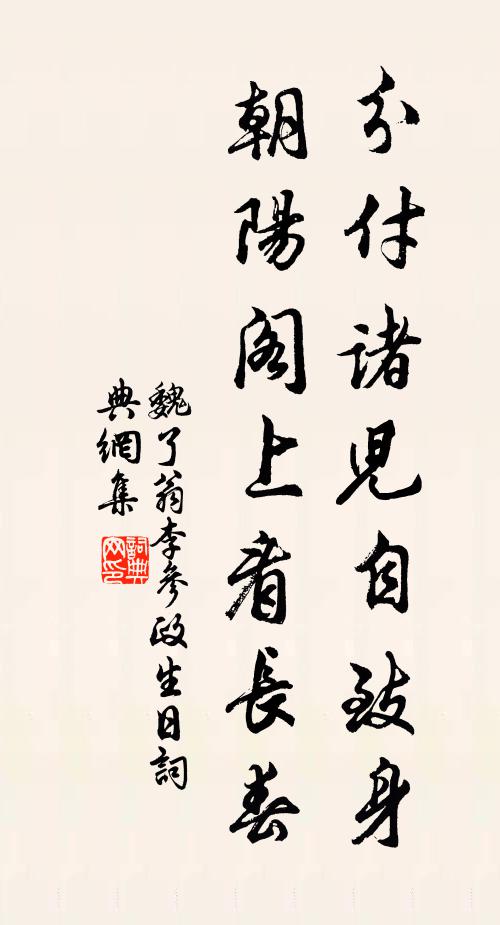 分付諸兒自致身
朝陽閣上看長春
魏了翁李參政生日詞
典網集
詞典网印